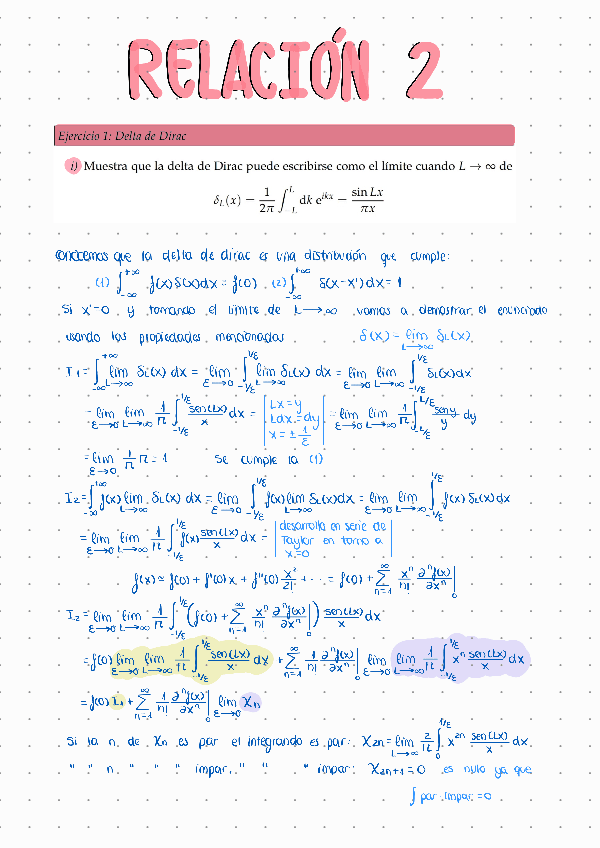 RELACIÓN 2
Ejercicio 1: Delta de Dirac
i) Muestra que la delta de Dirac puede escribirse como el límite cuando L → ∞ de
δ_L(x) = 1/2π ∫_{-L}^{L} dk e^{ikx} = sin Lx / πx
Conocemos que la delta de dirac es una distribución que cumple:
(1) ∫_{-∞}^{+∞} f(x) δ(x) dx = f(0) (2) ∫_{-∞}^{+∞} δ(x-x') dx = 1
Si x'=0 y tomando el límite de L→∞ vamos a demostrar el enunciado
usando las propiedades mencionadas δ(x) = lim_{L→∞} δ_L(x)
I_1 = ∫_{-∞}^{+∞} lim_{L→∞} δ_L(x) dx = lim_{ε→0} ∫_{-1/ε}^{1/ε} lim_{L→∞} δ_L(x) dx = lim_{ε→0} lim_{L→∞} ∫_{-1/ε}^{1/ε} δ_L(x) dx
= lim_{ε→0} lim_{L→∞} 1/π ∫_{-1/ε}^{1/ε} sen(Lx)/x dx = | Lx = y  Ldx = dy  x = ± 1/ε | = lim_{ε→0} lim_{L→∞} 1/π ∫_{-L/ε}^{L/ε} sen y / y dy
= lim_{ε→0} 1/π π = 1 se cumple la (1)
I_2 = ∫_{-∞}^{+∞} f(x) lim_{L→∞} δ_L(x) dx = lim_{ε→0} ∫_{-1/ε}^{1/ε} f(x) lim_{L→∞} δ_L(x) dx = lim_{ε→0} lim_{L→∞} ∫_{-1/ε}^{1/ε} f(x) δ_L(x) dx
= lim_{ε→0} lim_{L→∞} 1/π ∫_{1/ε}^{1/ε} f(x) sen(Lx)/x dx = | desarrollo en serie de Taylor en torno a x=0 |
f(x) ≃ f(0) + f'(0) x + f''(0) x²/2! + ... = f(0) + ∑_{n=1}^{∞} x^n/n! ∂^n f(x)/∂x^n |_0
I_2 = lim_{ε→0} lim_{L→∞} 1/π ∫_{1/ε}^{1/ε} (f(0) + ∑_{n=1}^{∞} x^n/n! ∂^n f(x)/∂x^n |_0) sen(Lx)/x dx
= f(0) lim_{ε→0} lim_{L→∞} 1/π ∫_{-1/ε}^{1/ε} sen(Lx)/x dx + ∑_{n=1}^{∞} 1/n! ∂^n f(x)/∂x^n |_0 lim_{ε→0} lim_{L→∞} 1/π ∫_{-1/ε}^{1/ε} x^n sen(Lx)/x dx
= f(0) I_1 + ∑_{n=1}^{∞} 1/n! ∂^n f(x)/∂x^n |_0 lim_{ε→0} χ_n
Si la n de χ_n es par el integrando es par: χ_{2n} = lim_{L→∞} 2/π ∫_0^{1/ε} x^{2n} sen(Lx)/x dx
" " n " " " impar " " " impar: χ_{2n+1} = 0 es nulo ya que
∫ par · impar = 0